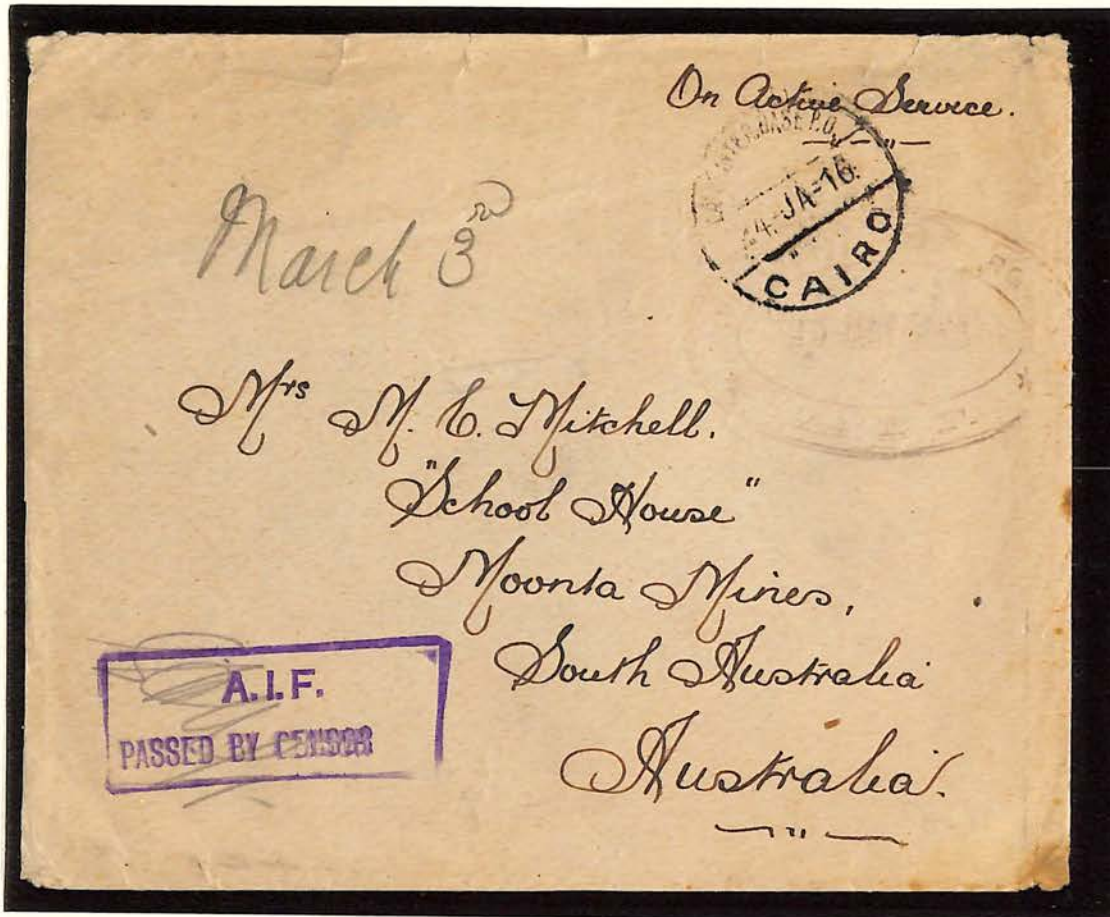 On Active Service.
BASE P.O.
4-JA-16
CAIRO
March 3rd
Mrs M. E. Mitchell.
"School House"
Moonta Mines,
South Australia
Australia.
A.I.F.
PASSED BY CENSOR